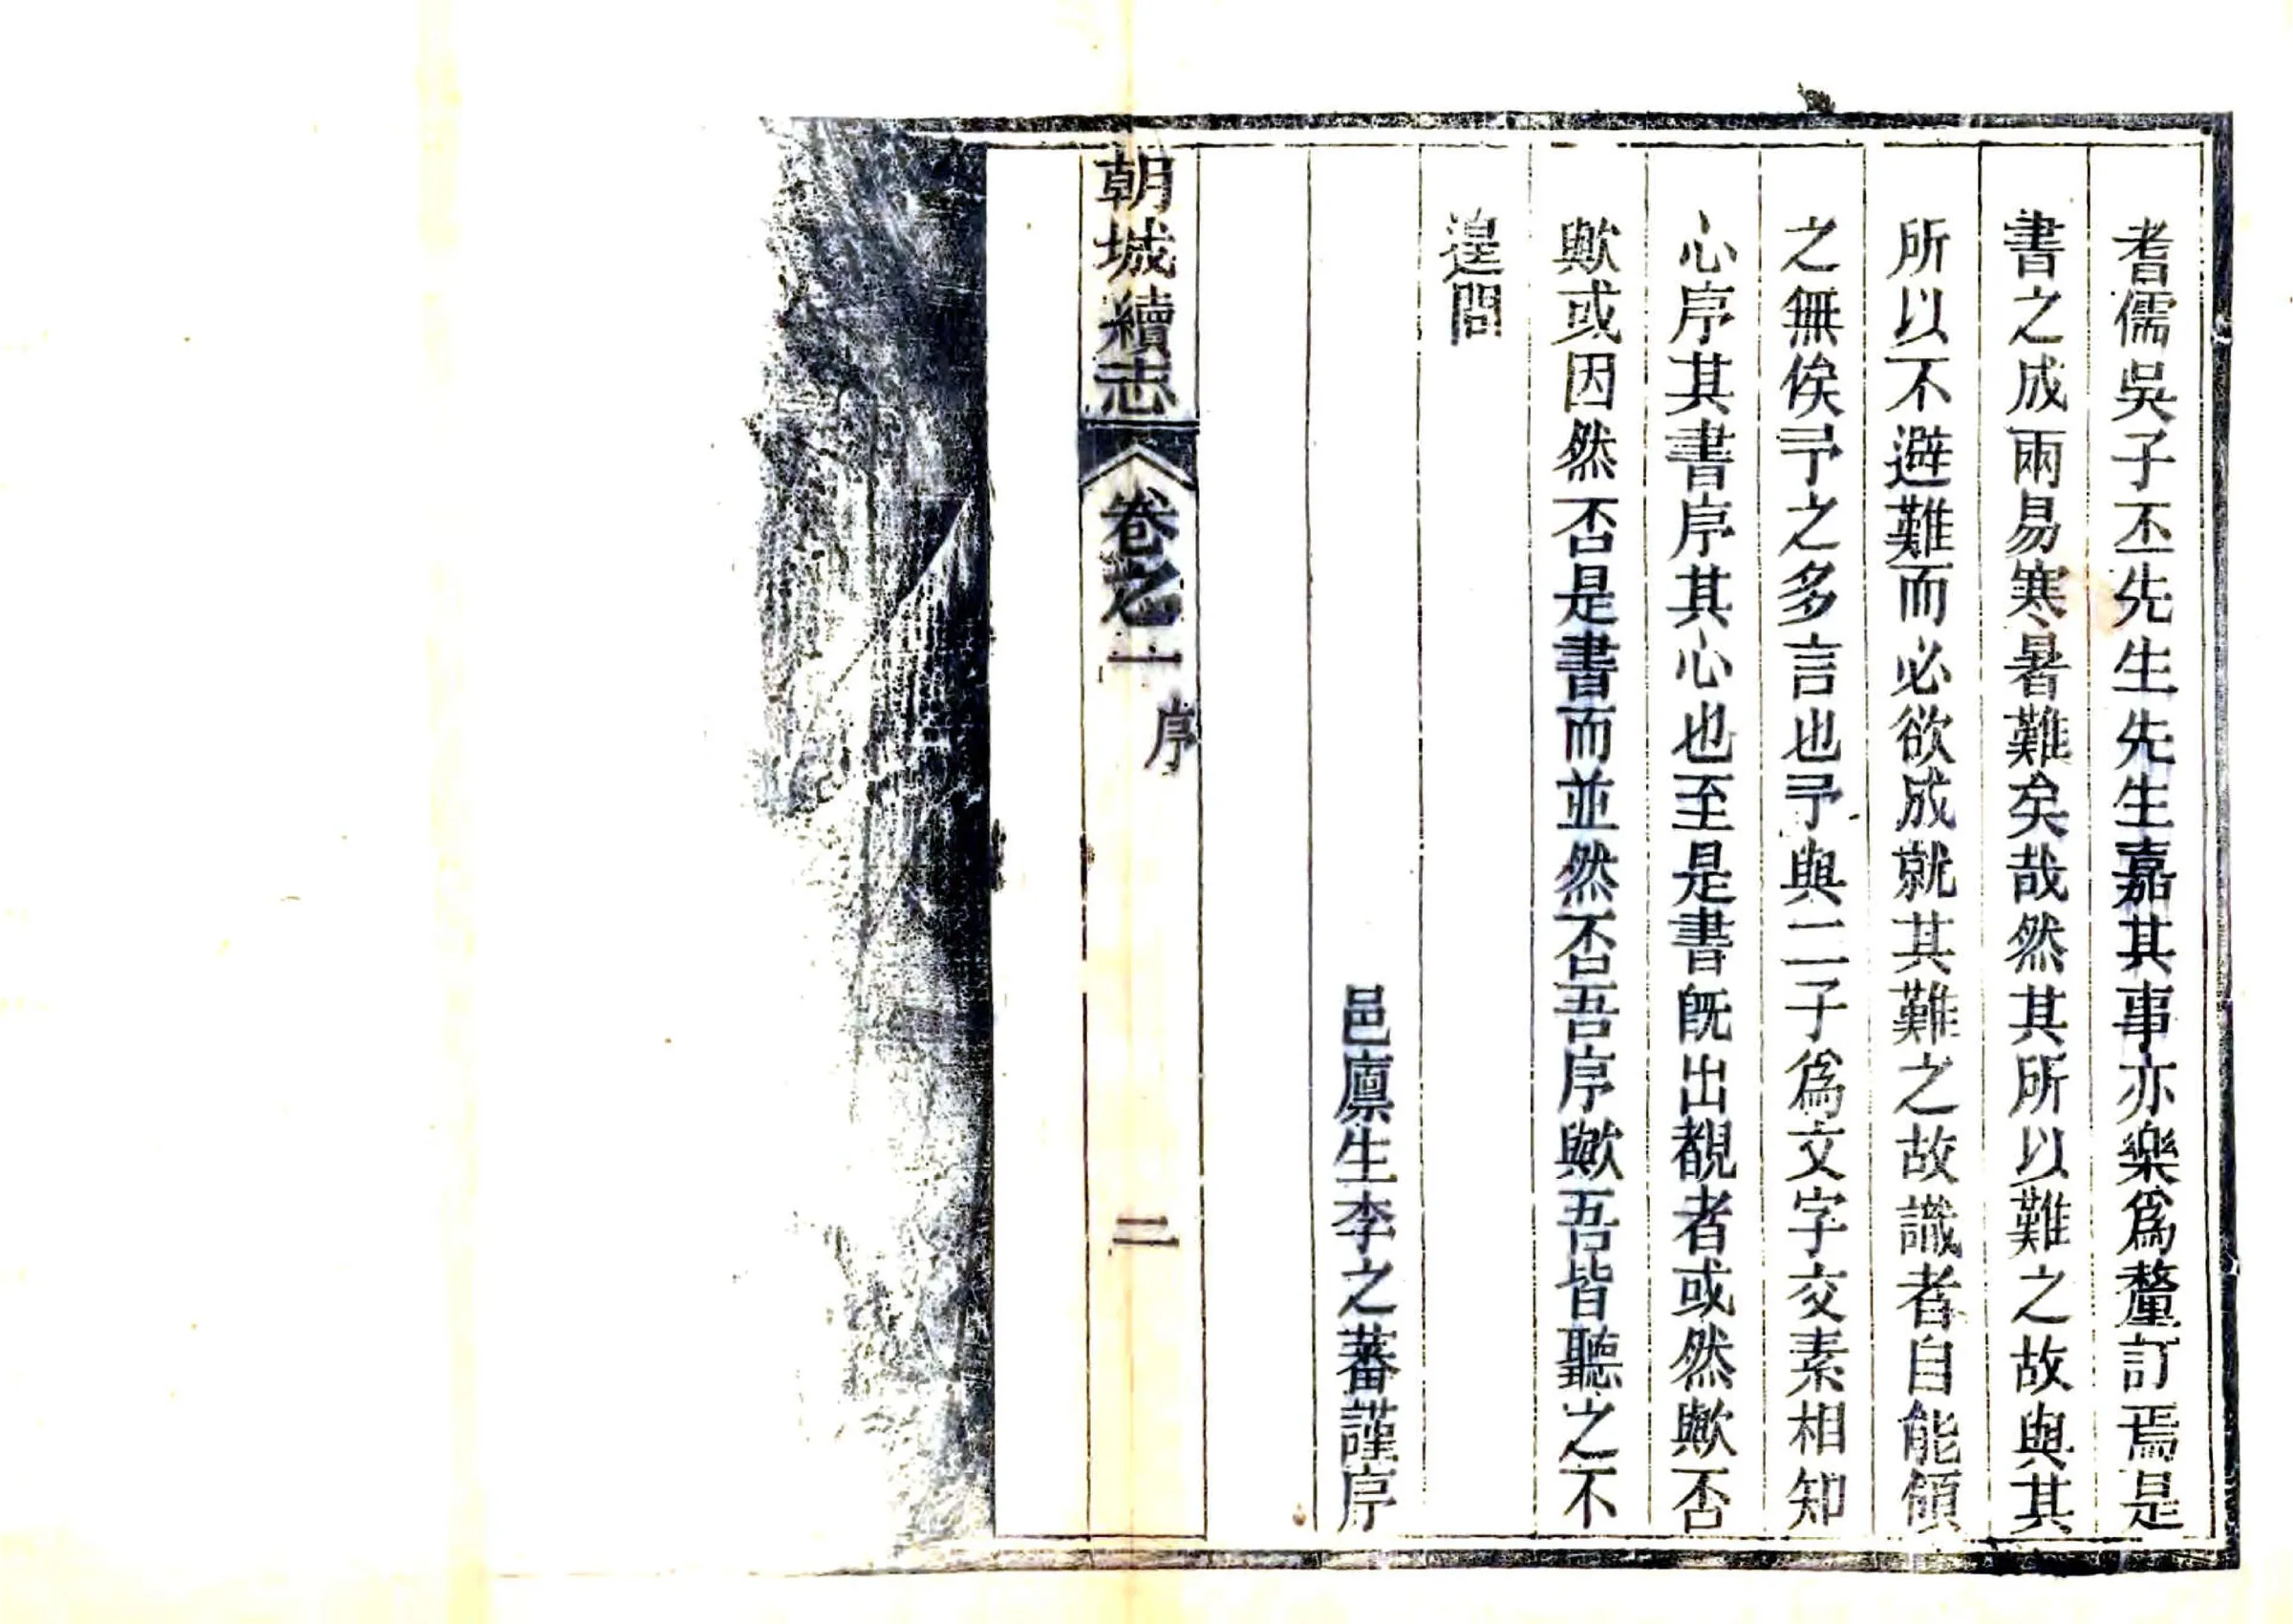 耆儒吳子丕先生先生嘉其事亦樂爲釐訂焉是
書之成兩易寒暑難矣哉然其所以難之故與其
所以不避難而必欲成就其難之故識者自能領
之無俟予之多言也予與二子爲文字交素相知
心序其書序其心也至是書旣出覩者或然歟否
歟或因然否是書而並然否吾序歟吾皆聽之不
遑問
邑廩生李之蕃謹序
朝城續志
卷之一
序
二